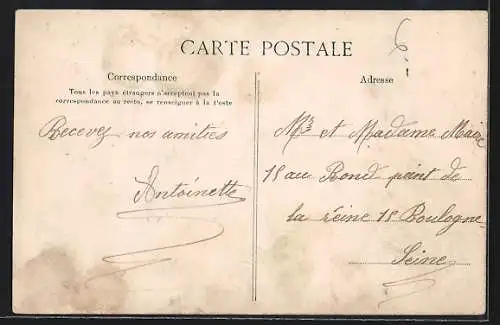 CARTE POSTALE
Correspondance
Tous les pays étrangers n'acceptent pas la
correspondance au recto, se renseigner à la Poste
Recevez nos amitiés
Antoinette
6
Adresse
Mr et Madame
18 au Rond point de
la reine 18 Boulogne
Seine